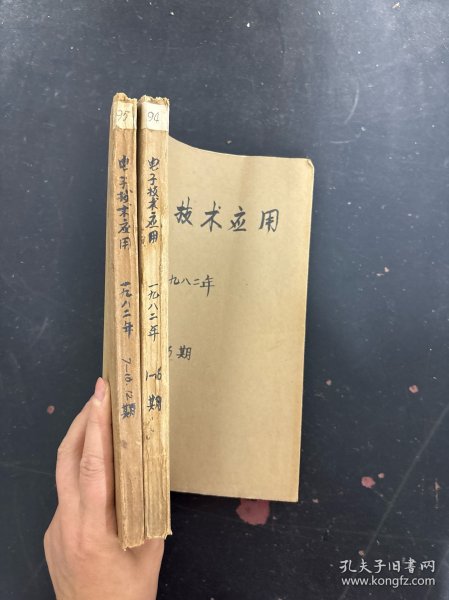 95
电子技术应用
一九八二年
7-10.12期
94
电子技术应用
一九八二年
1-6期
技术应用
九八二年
期
孔夫子旧书网
www.kongfz.com